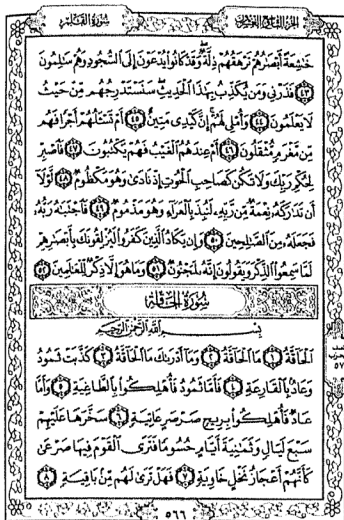 الجزء التاسع والعشرون سورة القلم
خَٰشِعَةً أَبْصَٰرُهُمْ تَرْهَقُهُمْ ذِلَّةٌ وَقَدْ كَانُوا۟ يُدْعَوْنَ إِلَى ٱلسُّجُودِ وَهُمْ سَٰلِمُونَ
﴿٤٣﴾ فَذَرْنِى وَمَن يُكَذِّبُ بِهَٰذَا ٱلْحَدِيثِ سَنَسْتَدْرِجُهُم مِّنْ حَيْثُ
لَا يَعْلَمُونَ ﴿٤٤﴾ وَأُمْلِى لَهُمْ إِنَّ كَيْدِى مَتِينٌ ﴿٤٥﴾ أَمْ تَسْـَٔلُهُمْ أَجْرًا فَهُم
مِّن مَّغْرَمٍ مُّثْقَلُونَ ﴿٤٦﴾ أَمْ عِندَهُمُ ٱلْغَيْبُ فَهُمْ يَكْتُبُونَ ﴿٤٧﴾ فَٱصْبِرْ
لِحُكْمِ رَبِّكَ وَلَا تَكُن كَصَاحِبِ ٱلْحُوتِ إِذْ نَادَىٰ وَهُوَ مَكْظُومٌ ﴿٤٨﴾ لَّوْلَآ
أَن تَدَٰرَكَهُۥ نِعْمَةٌ مِّن رَّبِّهِۦ لَنُبِذَ بِٱلْعَرَآءِ وَهُوَ مَذْمُومٌ ﴿٤٩﴾ فَٱجْتَبَٰهُ رَبُّهُۥ
فَجَعَلَهُۥ مِنَ ٱلصَّٰلِحِينَ ﴿٥٠﴾ وَإِن يَكَادُ ٱلَّذِينَ كَفَرُوا۟ لَيُزْلِقُونَكَ بِأَبْصَٰرِهِمْ
لَمَّا سَمِعُوا۟ ٱلذِّكْرَ وَيَقُولُونَ إِنَّهُۥ لَمَجْنُونٌ ﴿٥١﴾ وَمَا هُوَ إِلَّا ذِكْرٌ لِّلْعَٰلَمِينَ ﴿٥٢﴾
سُورَةُ الحَاقَّةِ
بِسْمِ ٱللَّهِ ٱلرَّحْمَٰنِ ٱلرَّحِيمِ
ٱلْحَآقَّةُ ﴿١﴾ مَا ٱلْحَآقَّةُ ﴿٢﴾ وَمَآ أَدْرَىٰكَ مَا ٱلْحَآقَّةُ ﴿٣﴾ كَذَّبَتْ ثَمُودُ
وَعَادٌۢ بِٱلْقَارِعَةِ ﴿٤﴾ فَأَمَّا ثَمُودُ فَأُهْلِكُوا۟ بِٱلطَّاغِيَةِ ﴿٥﴾ وَأَمَّا
عَادٌ فَأُهْلِكُوا۟ بِرِيحٍ صَرْصَرٍ عَاتِيَةٍ ﴿٦﴾ سَخَّرَهَا عَلَيْهِمْ
سَبْعَ لَيَالٍ وَثَمَٰنِيَةَ أَيَّامٍ حُسُومًا فَتَرَى ٱلْقَوْمَ فِيهَا صَرْعَىٰ
كَأَنَّهُمْ أَعْجَازُ نَخْلٍ خَاوِيَةٍ ﴿٧﴾ فَهَلْ تَرَىٰ لَهُم مِّنۢ بَاقِيَةٍ ﴿٨﴾
٥٦٦